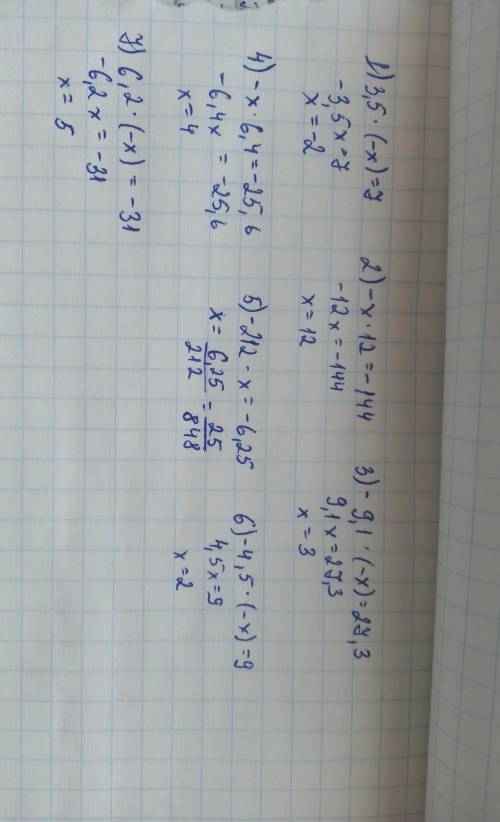 1) 3,5 · (-x) = 7
-3,5x = 7
x = -2
2) -x · 12 = -144
-12x = -144
x = 12
3) -9,1 · (-x) = 27,3
9,1x = 27,3
x = 3
4) -x · 6,4 = -25,6
-6,4x = -25,6
x = 4
5) -212 · x = -6,25
x = 6,25/212 = 25/848
6) -4,5 · (-x) = 9
4,5x = 9
x = 2
7) 6,2 · (-x) = -31
-6,2x = -31
x = 5